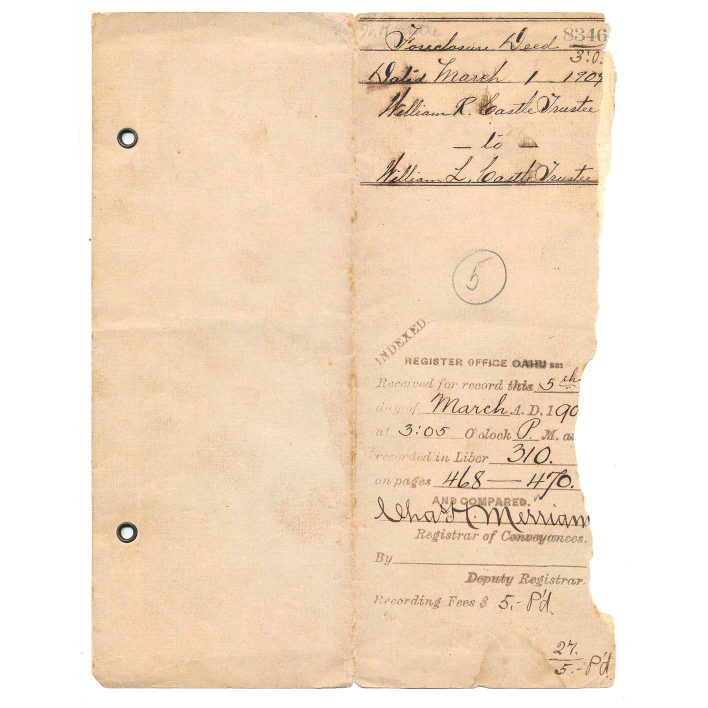 8346
Foreclosure Deed
3:0
Dated March 1 1909
William R. Castle Trustee
— to —
William L. Castle Trustee
5
INDEXED.
REGISTER OFFICE OAHU SS:
Received for record this 5th
day of March A. D. 190
at 3:05 O'clock P. M. a
recorded in Liber 310.
on pages 468 — 470.
AND COMPARED.
Chas. H. Merriam
Registrar of Conveyances.
By
Deputy Registrar.
Recording Fees $ 5.- P'd.
27.
5.- P'd